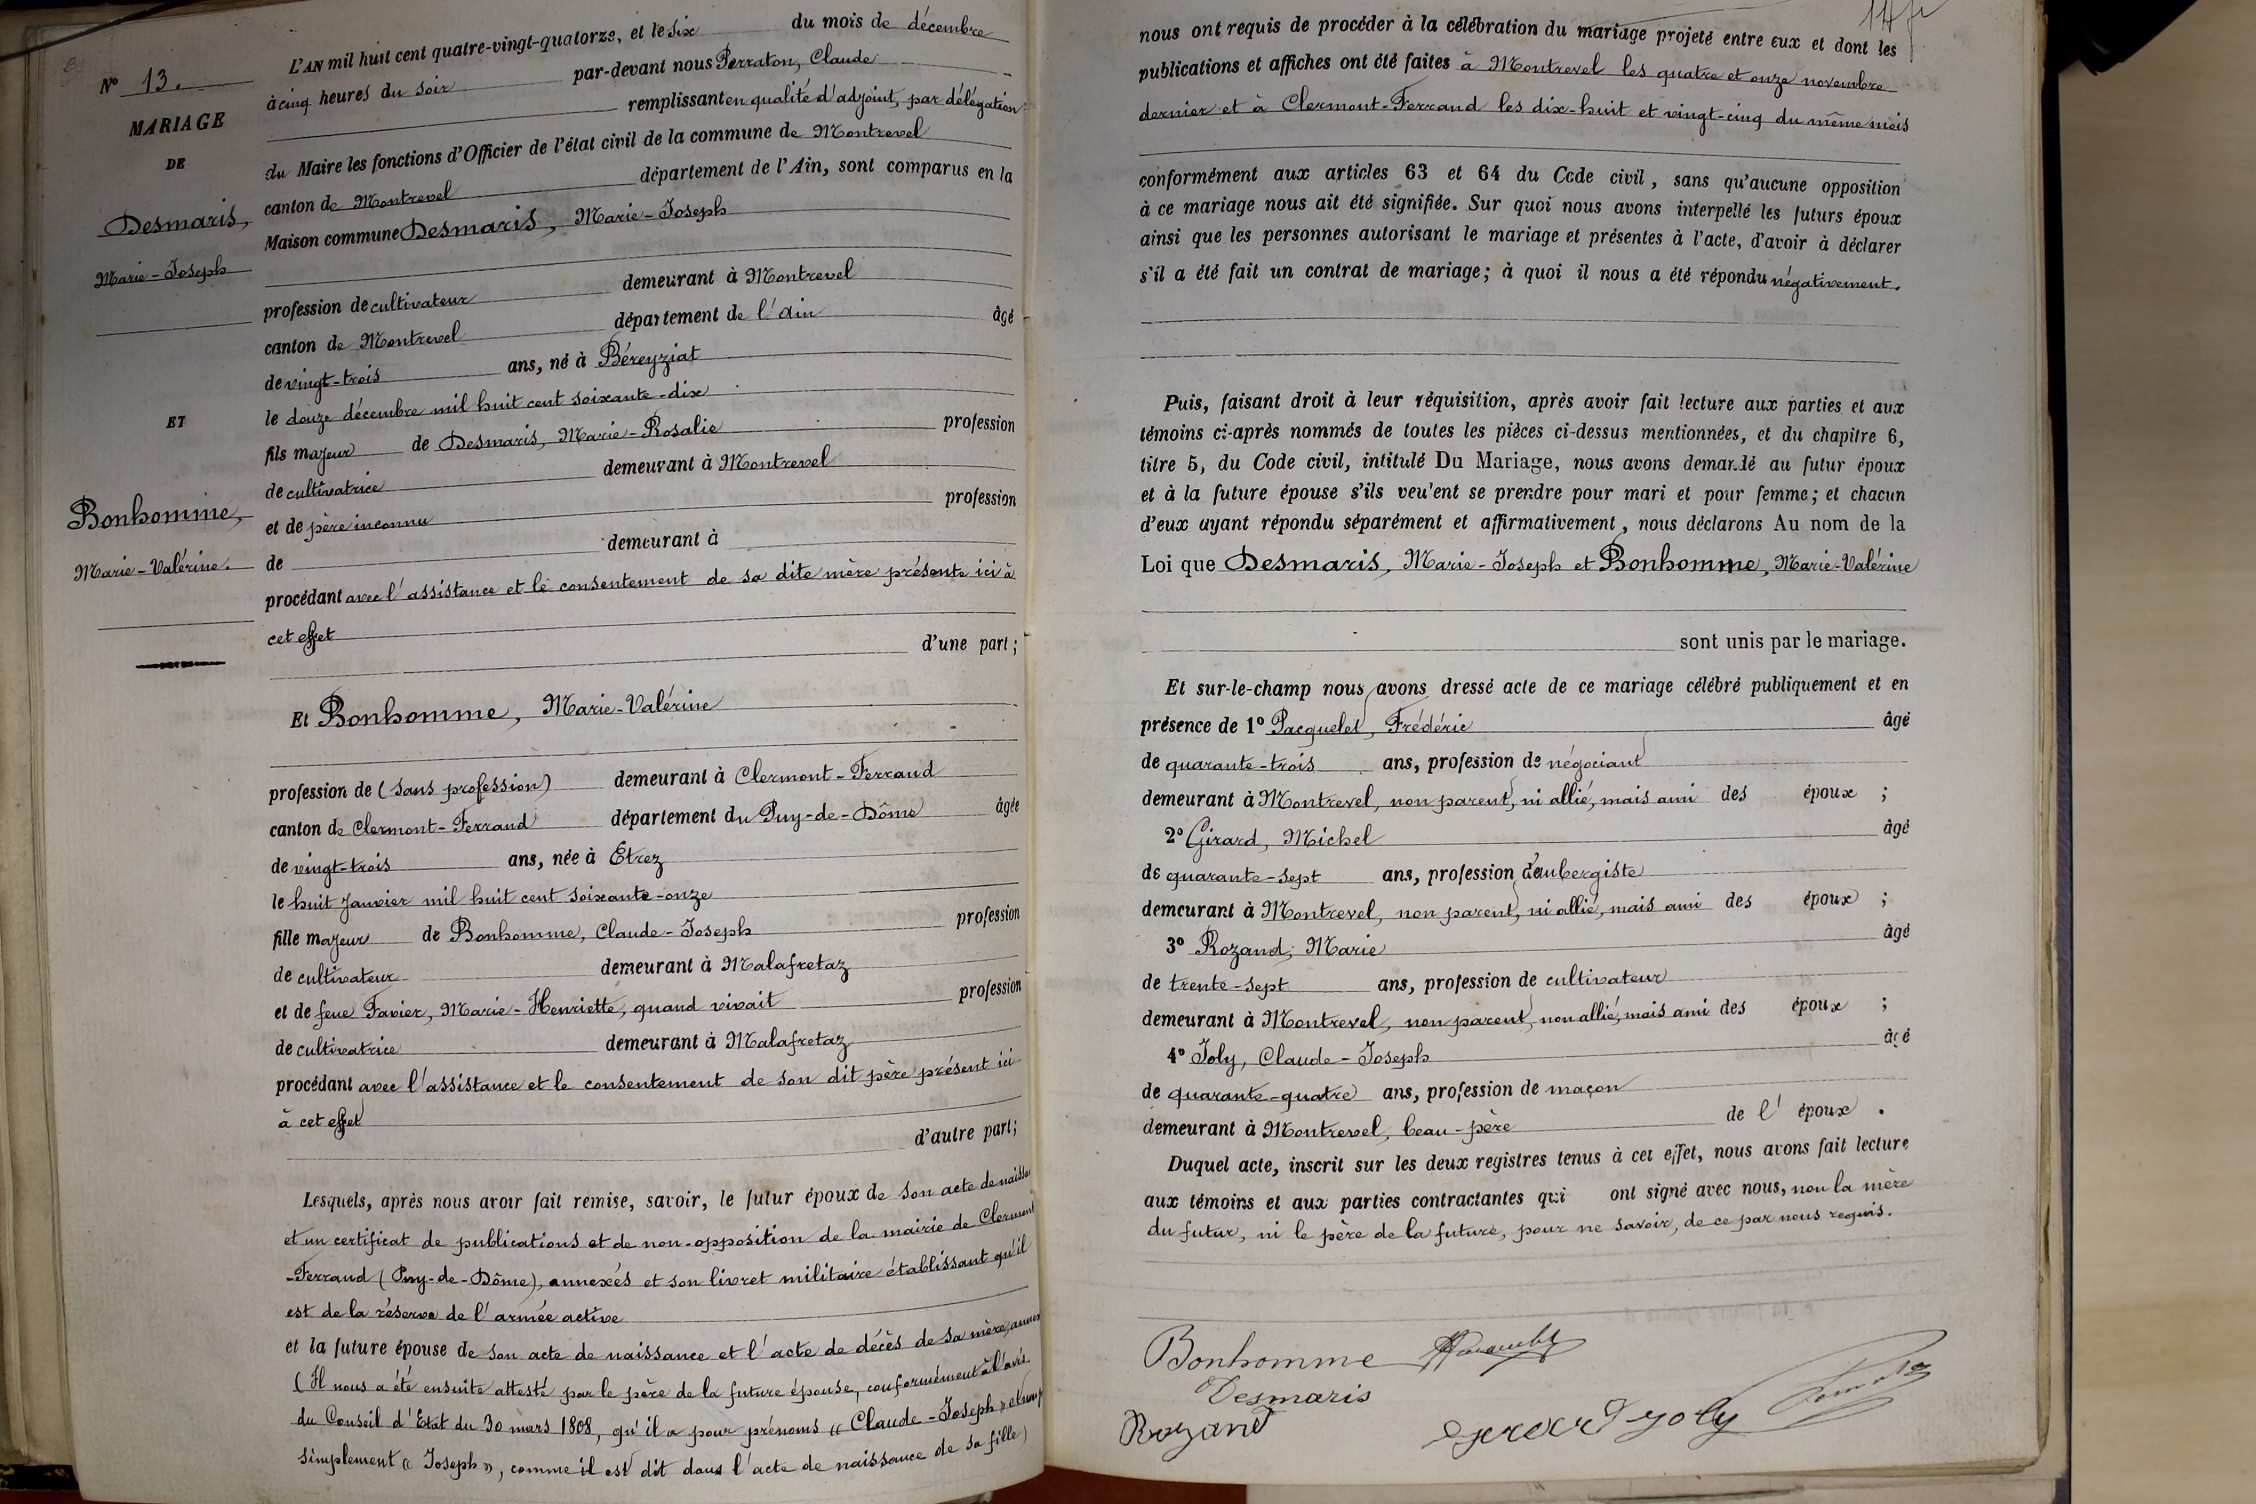 N° 13.
MARIAGE
DE
Desmaris,
Marie-Joseph
ET
Bonhomme,
Marie-Valérine.
L'AN mil huit cent quatre-vingt-quatorze, et le six du mois de décembre
à cinq heures du soir par-devant nous Perraton, Claude
remplissant en qualité d'adjoint, par délégation
du Maire les fonctions d'Officier de l'état civil de la commune de Montrevel
canton de Montrevel département de l'Ain, sont comparus en la
Maison commune Desmaris, Marie-Joseph
profession de cultivateur demeurant à Montrevel
canton de Montrevel département de l'Ain âgé
de vingt-trois ans, né à Béreyziat
le douze décembre mil huit cent soixante-dix
fils majeur de Desmaris, Marie-Rosalie profession
de cultivatrice demeurant à Montrevel
et de père inconnu profession
de demeurant à
procédant avec l'assistance et le consentement de sa dite mère présente ici à
cet effet
d'une part;
Et Bonhomme, Marie-Valérine
profession de (sans profession) demeurant à Clermont-Ferrand
canton de Clermont-Ferrand département du Puy-de-Dôme âgée
de vingt-trois ans, née à Etrez
le huit Janvier mil huit cent soixante-onze
fille majeur de Bonhomme, Claude-Joseph profession
de cultivateur demeurant à Malafretaz
et de feue Favier, Marie-Henriette, quand vivait profession
de cultivatrice demeurant à Malafretaz
procédant avec l'assistance et le consentement de son dit père présent ici
à cet effet
d'autre part;
Lesquels, après nous avoir fait remise, savoir, le futur époux de son acte de naissa
et un certificat de publications et de non-opposition de la mairie de Clermont
-Ferrand (Puy-de-Dôme), annexés et son livret militaire établissant qu'il
est de la réserve de l'armée active
et la future épouse de son acte de naissance et l'acte de décès de sa mère, annex
(Il nous a été ensuite attesté par le père de la future épouse, conformément à l'avis
du Conseil d'Etat du 30 mars 1808, qu'il a pour prénoms « Claude-Joseph » et non p
simplement « Joseph », comme il est dit dans l'acte de naissance de sa fille)
nous ont requis de procéder à la célébration du mariage projeté entre eux et dont les
publications et affiches ont été faites à Montrevel les quatre et onze novembre
dernier et à Clermont-Ferrand les dix-huit et vingt-cinq du même mois
conformément aux articles 63 et 64 du Code civil, sans qu'aucune opposition
à ce mariage nous ait été signifiée. Sur quoi nous avons interpellé les futurs époux
ainsi que les personnes autorisant le mariage et présentes à l'acte, d'avoir à déclarer
s'il a été fait un contrat de mariage; à quoi il nous a été répondu négativement.
Puis, faisant droit à leur réquisition, après avoir fait lecture aux parties et aux
témoins ci-après nommés de toutes les pièces ci-dessus mentionnées, et du chapitre 6,
titre 5, du Code civil, intitulé Du Mariage, nous avons demandé au futur époux
et à la future épouse s'ils veulent se prendre pour mari et pour femme; et chacun
d'eux ayant répondu séparément et affirmativement, nous déclarons Au nom de la
Loi que Desmaris, Marie-Joseph et Bonhomme, Marie-Valérine
sont unis par le mariage.
Et sur-le-champ nous avons dressé acte de ce mariage célébré publiquement et en
présence de 1° Pacquelet, Frédéric âgé
de quarante-trois ans, profession de négociant
demeurant à Montrevel, non parent, ni allié, mais ami des époux ;
2° Girard, Michel âgé
de quarante-sept ans, profession d'aubergiste
demeurant à Montrevel, non parent, ni allié, mais ami des époux ;
3° Rozand, Marie âgé
de trente-sept ans, profession de cultivateur
demeurant à Montrevel, non parent, non allié, mais ami des époux ;
4° Joly, Claude-Joseph âgé
de quarante-quatre ans, profession de maçon
demeurant à Montrevel, beau-père de l'époux .
Duquel acte, inscrit sur les deux registres tenus à cet effet, nous avons fait lecture
aux témoins et aux parties contractantes qui ont signé avec nous, non la mère
du futur, ni le père de la future, pour ne savoir, de ce par nous requis.
Bonhomme
Desmaris
Rozand Joly